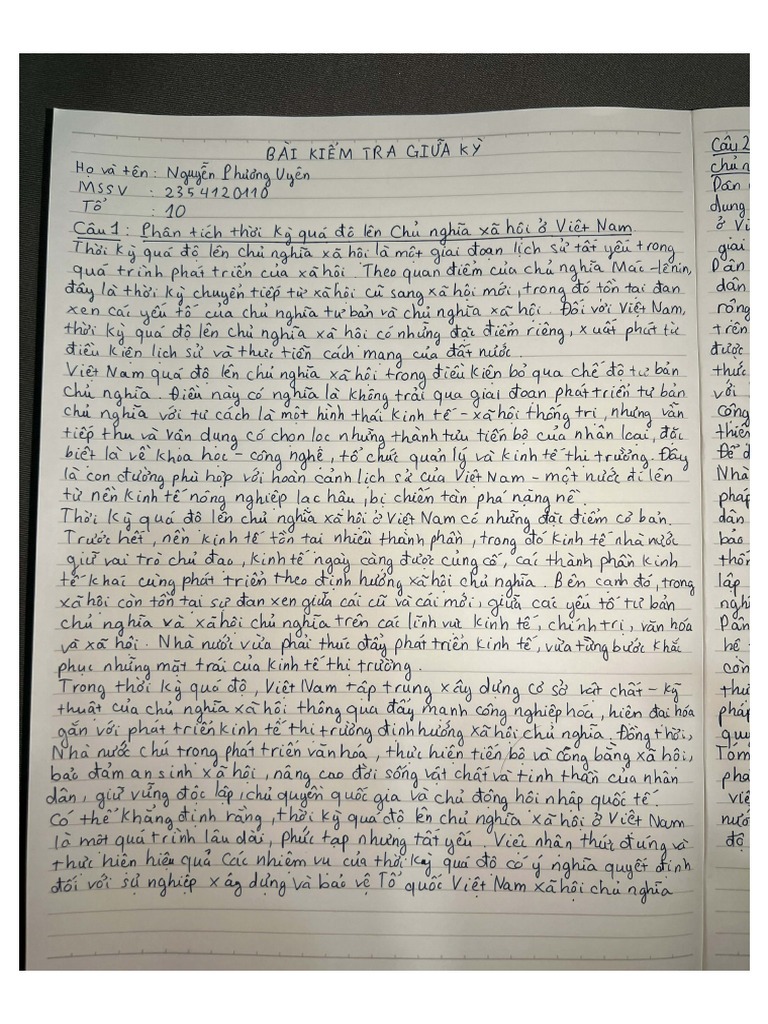 BÀI KIỂM TRA GIỮA KỲ
Họ và tên : Nguyễn Phương Uyên
MSSV : 2354120110
Tổ : 10
Câu 1 : Phân tích thời kỳ quá độ lên Chủ nghĩa xã hội ở Việt Nam
Thời kỳ quá độ lên chủ nghĩa xã hội là một giai đoạn lịch sử tất yếu trong
quá trình phát triển của xã hội. Theo quan điểm của chủ nghĩa Mác-Lênin,
đây là thời kỳ chuyển tiếp từ xã hội cũ sang xã hội mới, trong đó tồn tại đan
xen các yếu tố của chủ nghĩa tư bản và chủ nghĩa xã hội. Đối với Việt Nam,
thời kỳ quá độ lên chủ nghĩa xã hội có những đặc điểm riêng, xuất phát từ
điều kiện lịch sử và thực tiễn cách mạng của đất nước.
Việt Nam quá độ lên chủ nghĩa xã hội trong điều kiện bỏ qua chế độ tư bản
chủ nghĩa. Điều này có nghĩa là không trải qua giai đoạn phát triển tư bản
chủ nghĩa với tư cách là một hình thái kinh tế - xã hội thống trị, nhưng vẫn
tiếp thu và vận dụng có chọn lọc những thành tựu tiến bộ của nhân loại, đặc
biệt là về khoa học - công nghệ, tổ chức quản lý và kinh tế thị trường. Đây
là con đường phù hợp với hoàn cảnh lịch sử của Việt Nam - một nước đi lên
từ nền kinh tế nông nghiệp lạc hậu, bị chiến tàn phá nặng nề.
Thời kỳ quá độ lên chủ nghĩa xã hội ở Việt Nam có những đặc điểm cơ bản.
Trước hết, nền kinh tế tồn tại nhiều thành phần, trong đó kinh tế nhà nước
giữ vai trò chủ đạo, kinh tế ngày càng được củng cố, các thành phần kinh
tế khác cùng phát triển theo định hướng xã hội chủ nghĩa. Bên cạnh đó, trong
xã hội còn tồn tại sự đan xen giữa cái cũ và cái mới, giữa các yếu tố tư bản
chủ nghĩa và xã hội chủ nghĩa trên các lĩnh vực kinh tế, chính trị, văn hóa
và xã hội. Nhà nước vừa phải thúc đẩy phát triển kinh tế, vừa từng bước khắc
phục những mặt trái của kinh tế thị trường.
Trong thời kỳ quá độ, Việt Nam tập trung xây dựng cơ sở vật chất - kỹ
thuật của chủ nghĩa xã hội thông qua đẩy mạnh công nghiệp hóa, hiện đại hóa
gắn với phát triển kinh tế thị trường định hướng xã hội chủ nghĩa. Đồng thời,
Nhà nước chú trọng phát triển văn hóa, thực hiện tiến bộ và công bằng xã hội,
bảo đảm an sinh xã hội, nâng cao đời sống vật chất và tinh thần của nhân
dân, giữ vững độc lập, chủ quyền quốc gia và chủ động hội nhập quốc tế.
Có thể khẳng định rằng, thời kỳ quá độ lên chủ nghĩa xã hội ở Việt Nam
là một quá trình lâu dài, phức tạp nhưng tất yếu. Việc nhận thức đúng và
thực hiện hiệu quả các nhiệm vụ của thời kỳ quá độ có ý nghĩa quyết định
đối với sự nghiệp xây dựng và bảo vệ Tổ quốc Việt Nam xã hội chủ nghĩa
Câu 2
chủ n
Dân
dung
ở Vi
giai
Dân
dân
rộng
trên
được
thực
với
công
thiên
Để đ
Nhà
pháp
dân
bảo
thôn
lập
nghi
Dân
hệ
còn
thư
pháp
quy
Tóm
phá
việ
nướ
độ